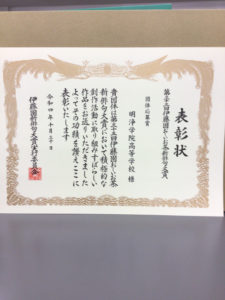 表彰状
第三十三回伊藤園お～いお茶新俳句大賞
団体応募賞
明浄学院高等学校 様
貴団体は第三十三回伊藤園お～いお茶
新俳句大賞において積極的な
創作活動に取り組みすばらしい
作品をお送りいただきました
よってその功績を讃えここに
表彰いたします
令和四年十月三十日
伊藤園新俳句大賞実行委員会